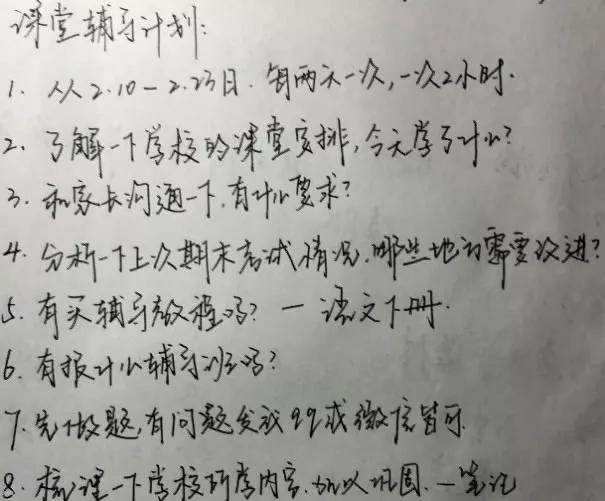 课堂辅导计划:
1. 从2.10-2.23日. 每两天一次, 一次2小时.
2. 了解一下学校的课堂安排, 今天学了什么?
3. 和家长沟通一下. 有什么要求?
4. 分析一下上次期末考试情况. 哪些地方需要改进?
5. 有买辅导教程吗? — 语文下册.
6. 有报什么辅导班吗?
7. 先做题, 有问题发我qq或微信皆可.
8. 梳理一下学校所学内容. 加以巩固. — 笔记